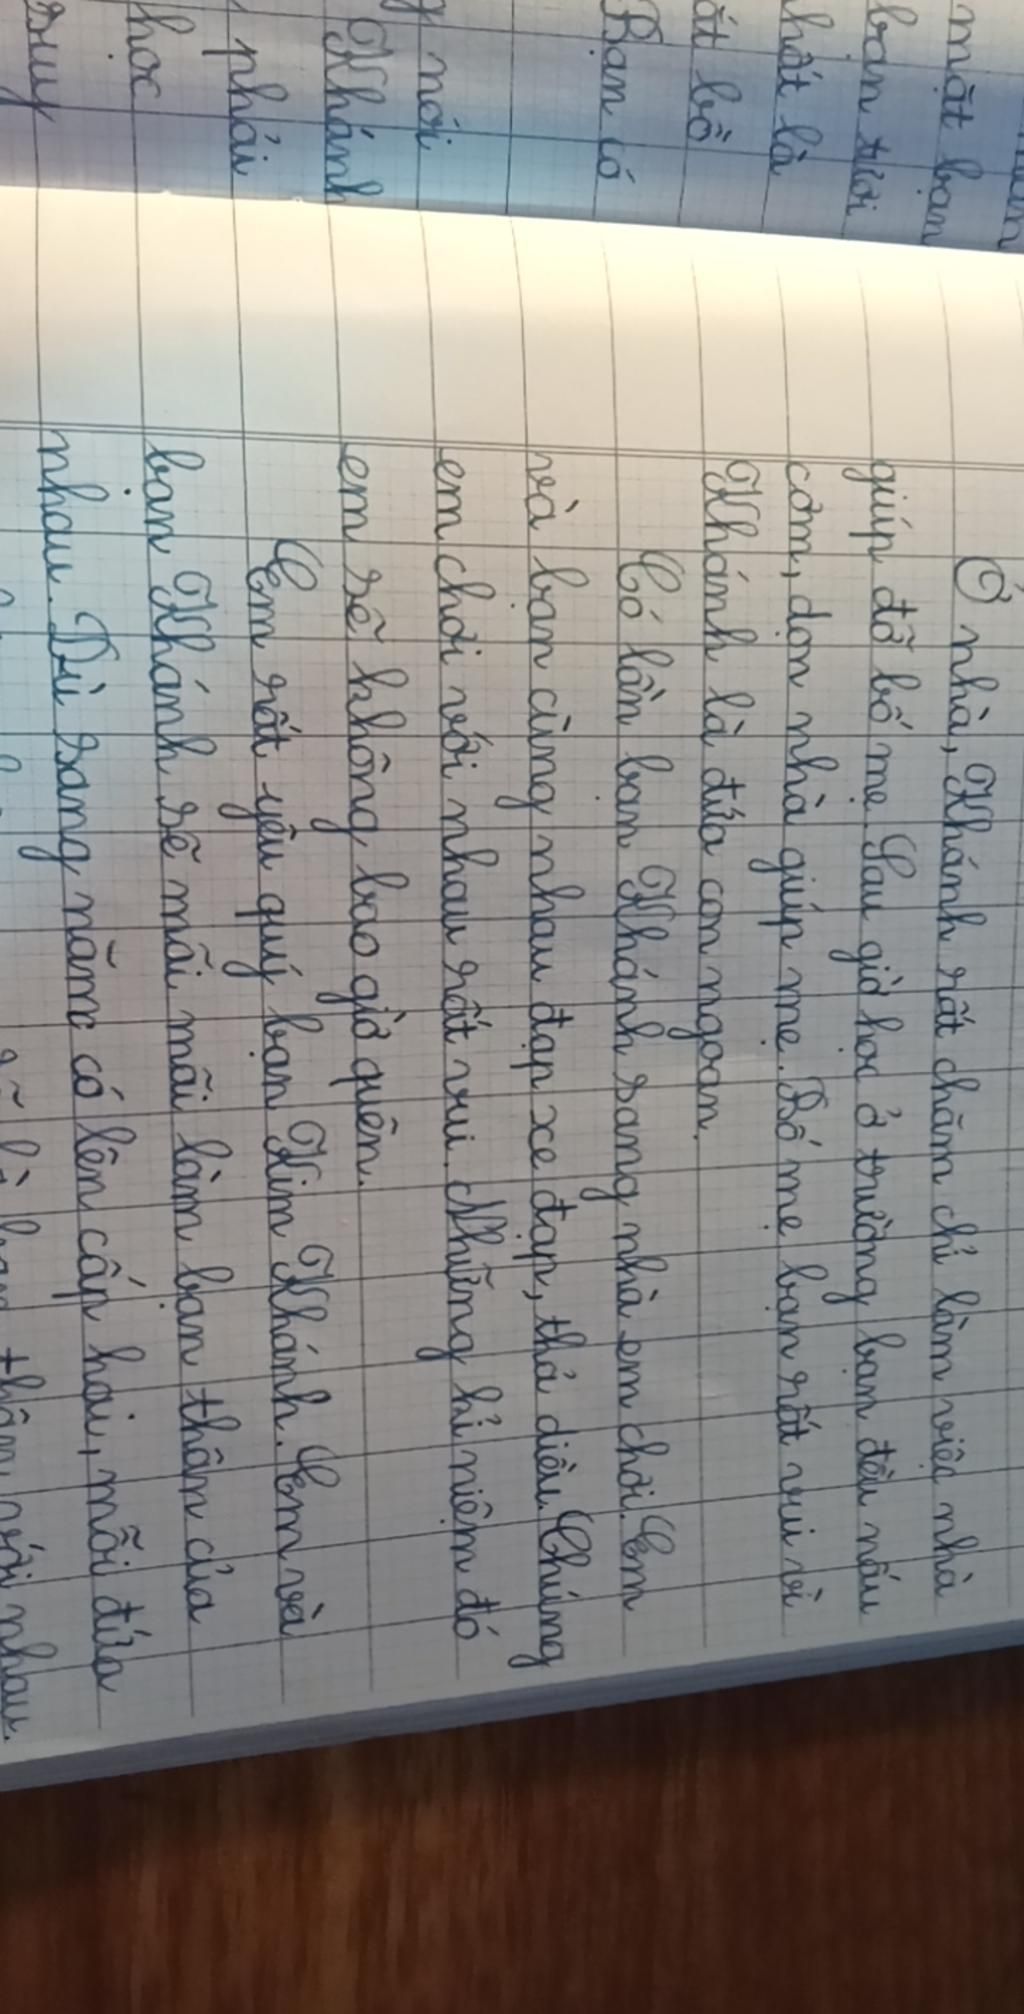 mặt bạn
bạn trời
nhất là
ất bồ
Bạn có
nói
Khánh
phải
học
suy
Ở nhà, Khánh rất chăm chỉ làm việc nhà
giúp đỡ bố mẹ. Sau giờ học ở trường bạn đều nấu
cơm, dọn nhà giúp mẹ. Bố mẹ bạn rất vui vì
Khánh là đứa con ngoan.
Có lần bạn Khánh sang nhà em chơi. Em
và bạn cùng nhau đạp xe đạp, thả diều. Chúng
em chơi với nhau rất vui. Những kỉ niệm đó
em sẽ không bao giờ quên.
Em rất yêu quý bạn Kim Khánh. Em và
bạn Khánh sẽ mãi mãi làm bạn thân của
nhau. Dù sang năm có lên cấp hai, mỗi đứa
thân với nhau.